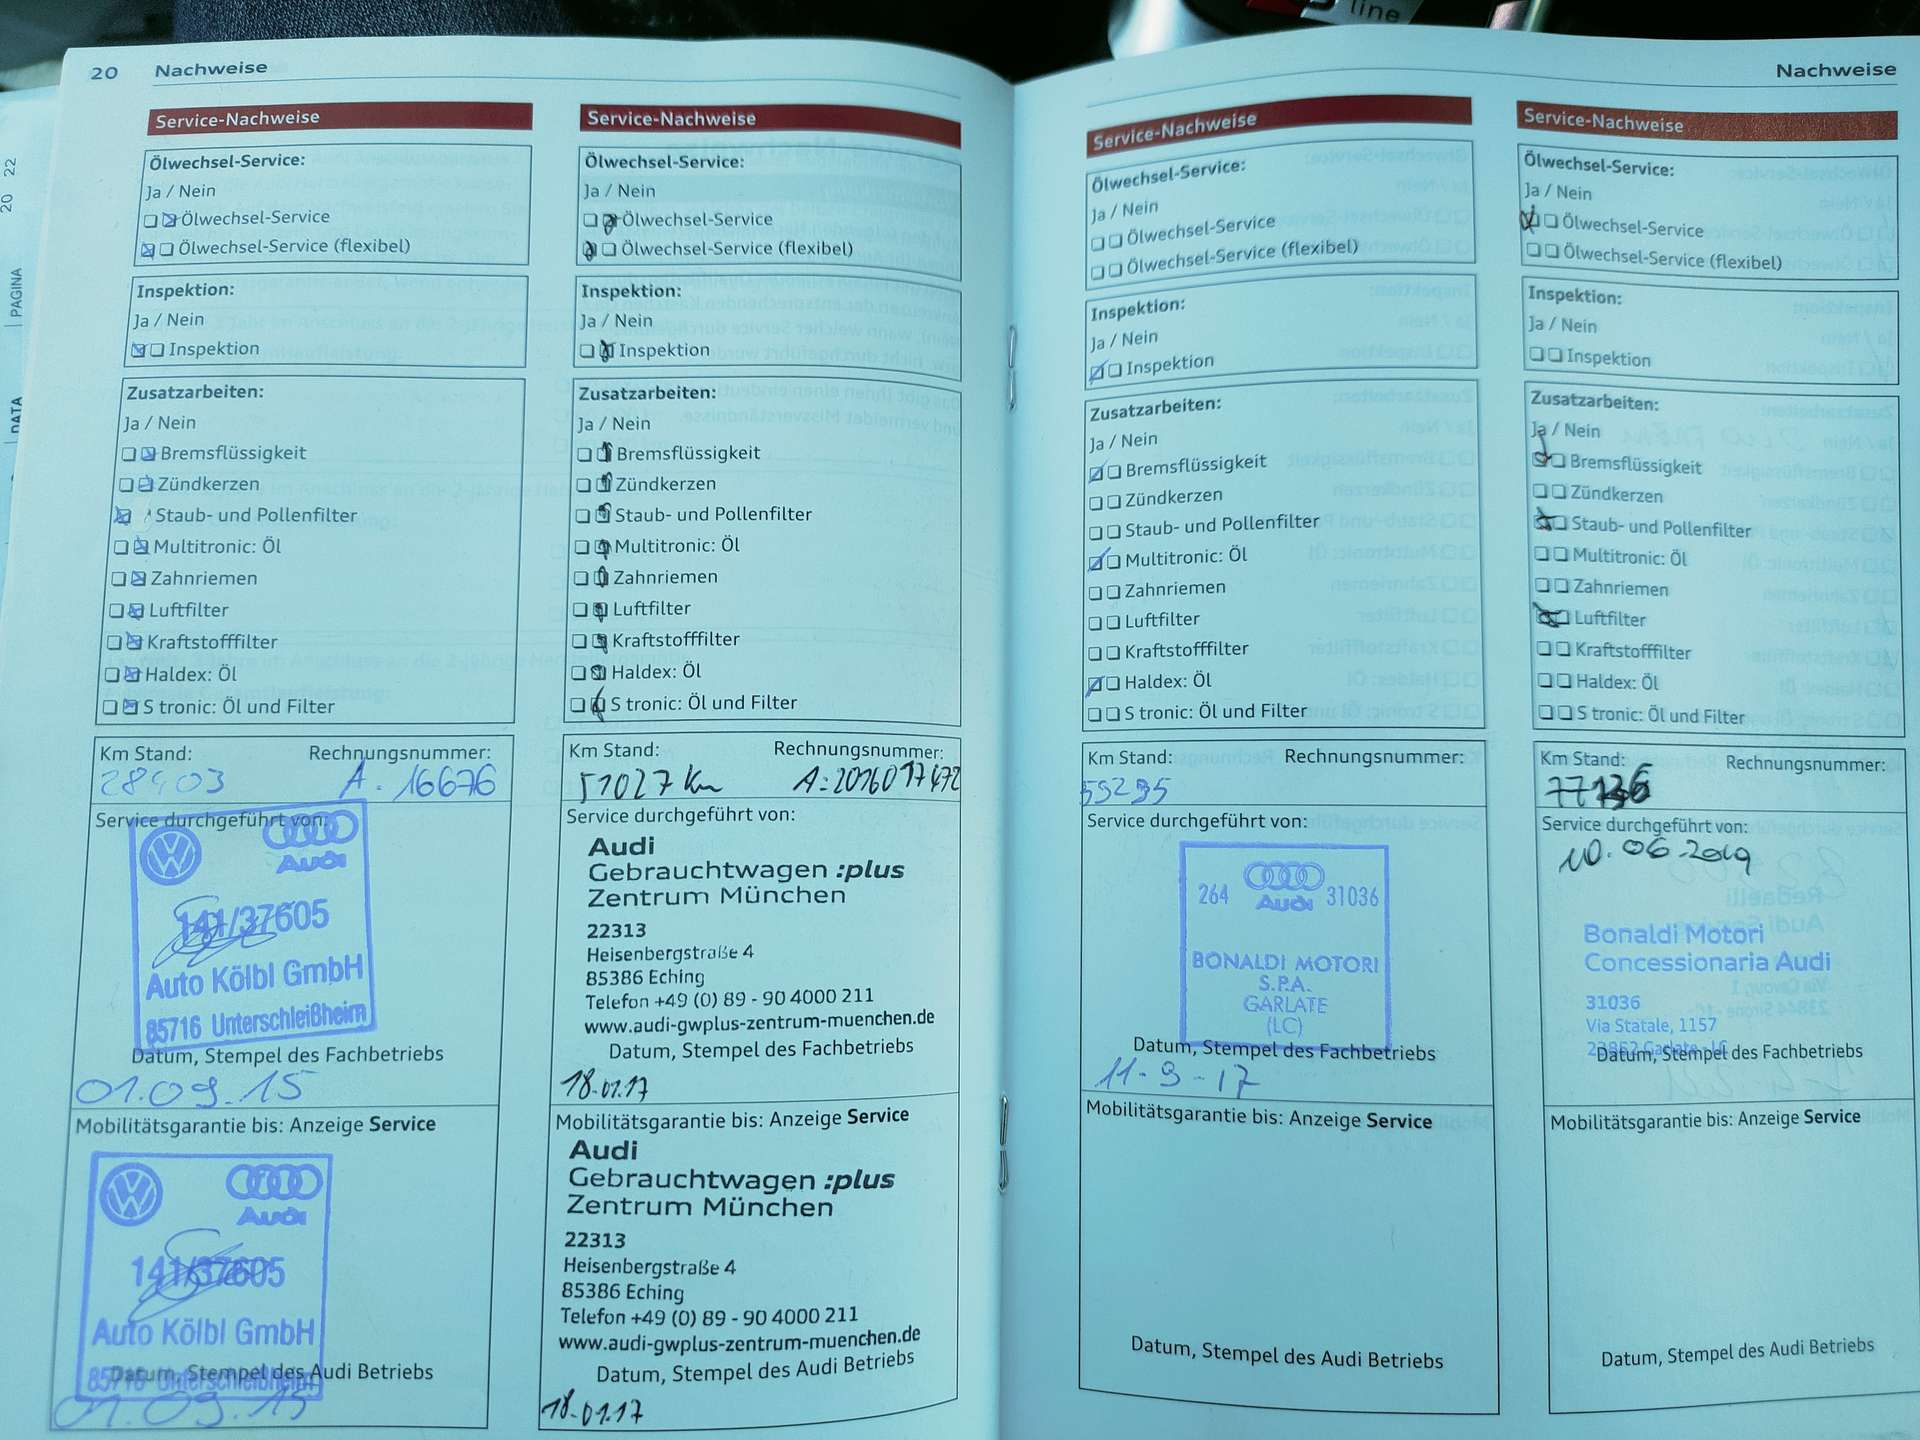 line
20 22
PAGINA
DATA
20 Nachweise
Service-Nachweise
Ölwechsel-Service:
Ja / Nein
Ölwechsel-Service
Ölwechsel-Service (flexibel)
Inspektion:
Ja / Nein
Inspektion
Zusatzarbeiten:
Ja / Nein
Bremsflüssigkeit
Zündkerzen
Staub- und Pollenfilter
Multitronic: Öl
Zahnriemen
Luftfilter
Kraftstofffilter
Haldex: Öl
S tronic: Öl und Filter
Km Stand: Rechnungsnummer:
28403 A. 16676
Service durchgeführt von:
Audi
141/37605
Auto Kölbl GmbH
85716 Unterschleißheim
Datum, Stempel des Fachbetriebs
01.09.15
Mobilitätsgarantie bis: Anzeige Service
Audi
141/37605
Auto Kölbl GmbH
85716 Unterschleißheim
Datum, Stempel des Audi Betriebs
01.09.15
Service-Nachweise
Ölwechsel-Service:
Ja / Nein
Ölwechsel-Service
Ölwechsel-Service (flexibel)
Inspektion:
Ja / Nein
Inspektion
Zusatzarbeiten:
Ja / Nein
Bremsflüssigkeit
Zündkerzen
Staub- und Pollenfilter
Multitronic: Öl
Zahnriemen
Luftfilter
Kraftstofffilter
Haldex: Öl
S tronic: Öl und Filter
Km Stand: Rechnungsnummer:
51027 Km A: 2016017472
Service durchgeführt von:
Audi
Gebrauchtwagen :plus
Zentrum München
22313
Heisenbergstraße 4
85386 Eching
Telefon +49 (0) 89 - 90 4000 211
www.audi-gwplus-zentrum-muenchen.de
Datum, Stempel des Fachbetriebs
18.01.17
Mobilitätsgarantie bis: Anzeige Service
Audi
Gebrauchtwagen :plus
Zentrum München
22313
Heisenbergstraße 4
85386 Eching
Telefon +49 (0) 89 - 90 4000 211
www.audi-gwplus-zentrum-muenchen.de
Datum, Stempel des Audi Betriebs
18.01.17
Nachweise
Service-Nachweise
Ölwechsel-Service:
Ja / Nein
Ölwechsel-Service
Ölwechsel-Service (flexibel)
Inspektion:
Ja / Nein
Inspektion
Zusatzarbeiten:
Ja / Nein
Bremsflüssigkeit
Zündkerzen
Staub- und Pollenfilter
Multitronic: Öl
Zahnriemen
Luftfilter
Kraftstofffilter
Haldex: Öl
S tronic: Öl und Filter
Km Stand: Rechnungsnummer:
59295
Service durchgeführt von:
264 Audi 31036
BONALDI MOTORI
S.P.A.
GARLATE
(LC)
Datum, Stempel des Fachbetriebs
11-9-17
Mobilitätsgarantie bis: Anzeige Service
Datum, Stempel des Audi Betriebs
Service-Nachweise
Ölwechsel-Service:
Ja / Nein
Ölwechsel-Service
Ölwechsel-Service (flexibel)
Inspektion:
Ja / Nein
Inspektion
Zusatzarbeiten:
Ja / Nein
Bremsflüssigkeit
Zündkerzen
Staub- und Pollenfilter
Multitronic: Öl
Zahnriemen
Luftfilter
Kraftstofffilter
Haldex: Öl
S tronic: Öl und Filter
Km Stand: Rechnungsnummer:
Service durchgeführt von:
10.06.2019
Bonaldi Motori
Concessionaria Audi
31036
Via Statale, 1157
23852 Garlate - LC
Datum, Stempel des Fachbetriebs
Mobilitätsgarantie bis: Anzeige Service
Datum, Stempel des Audi Betriebs